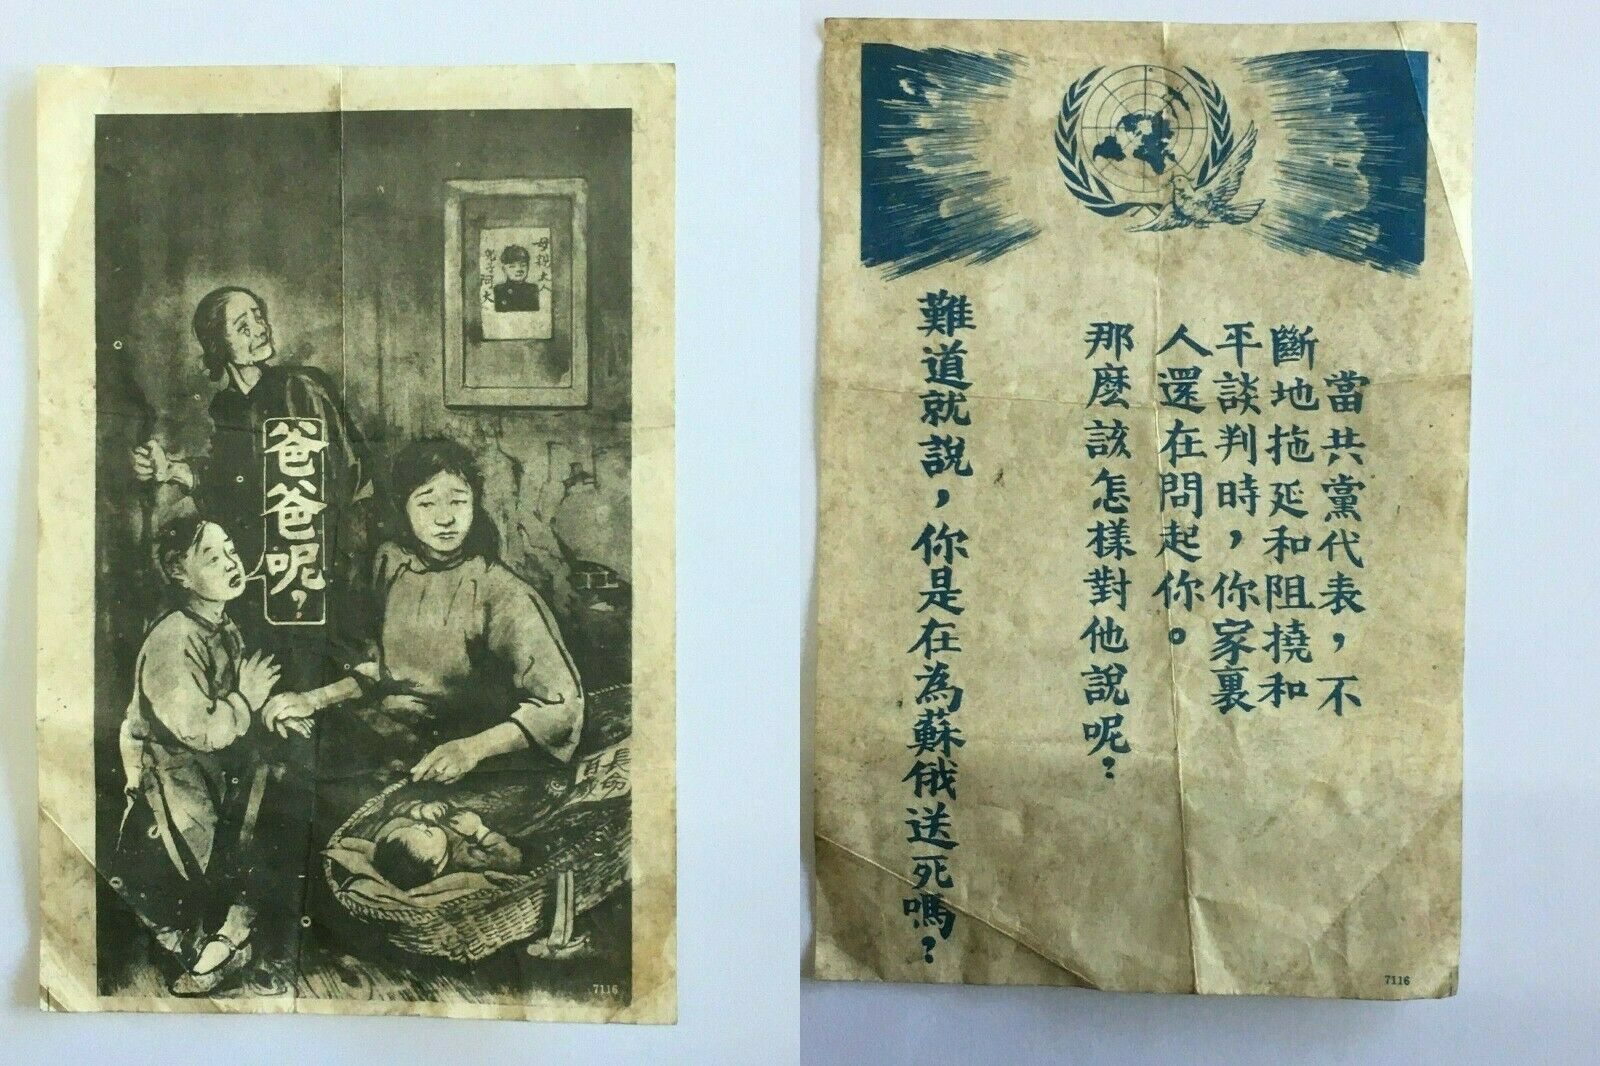 爸爸呢？
母親大人
兒子阿大
長命
7116
當共黨代表，不
斷地拖延和阻撓和
平談判時，你家裏
人還在問起你。
那麼該怎樣對他說呢？
難道就說，你是在為蘇俄送死嗎？
7116